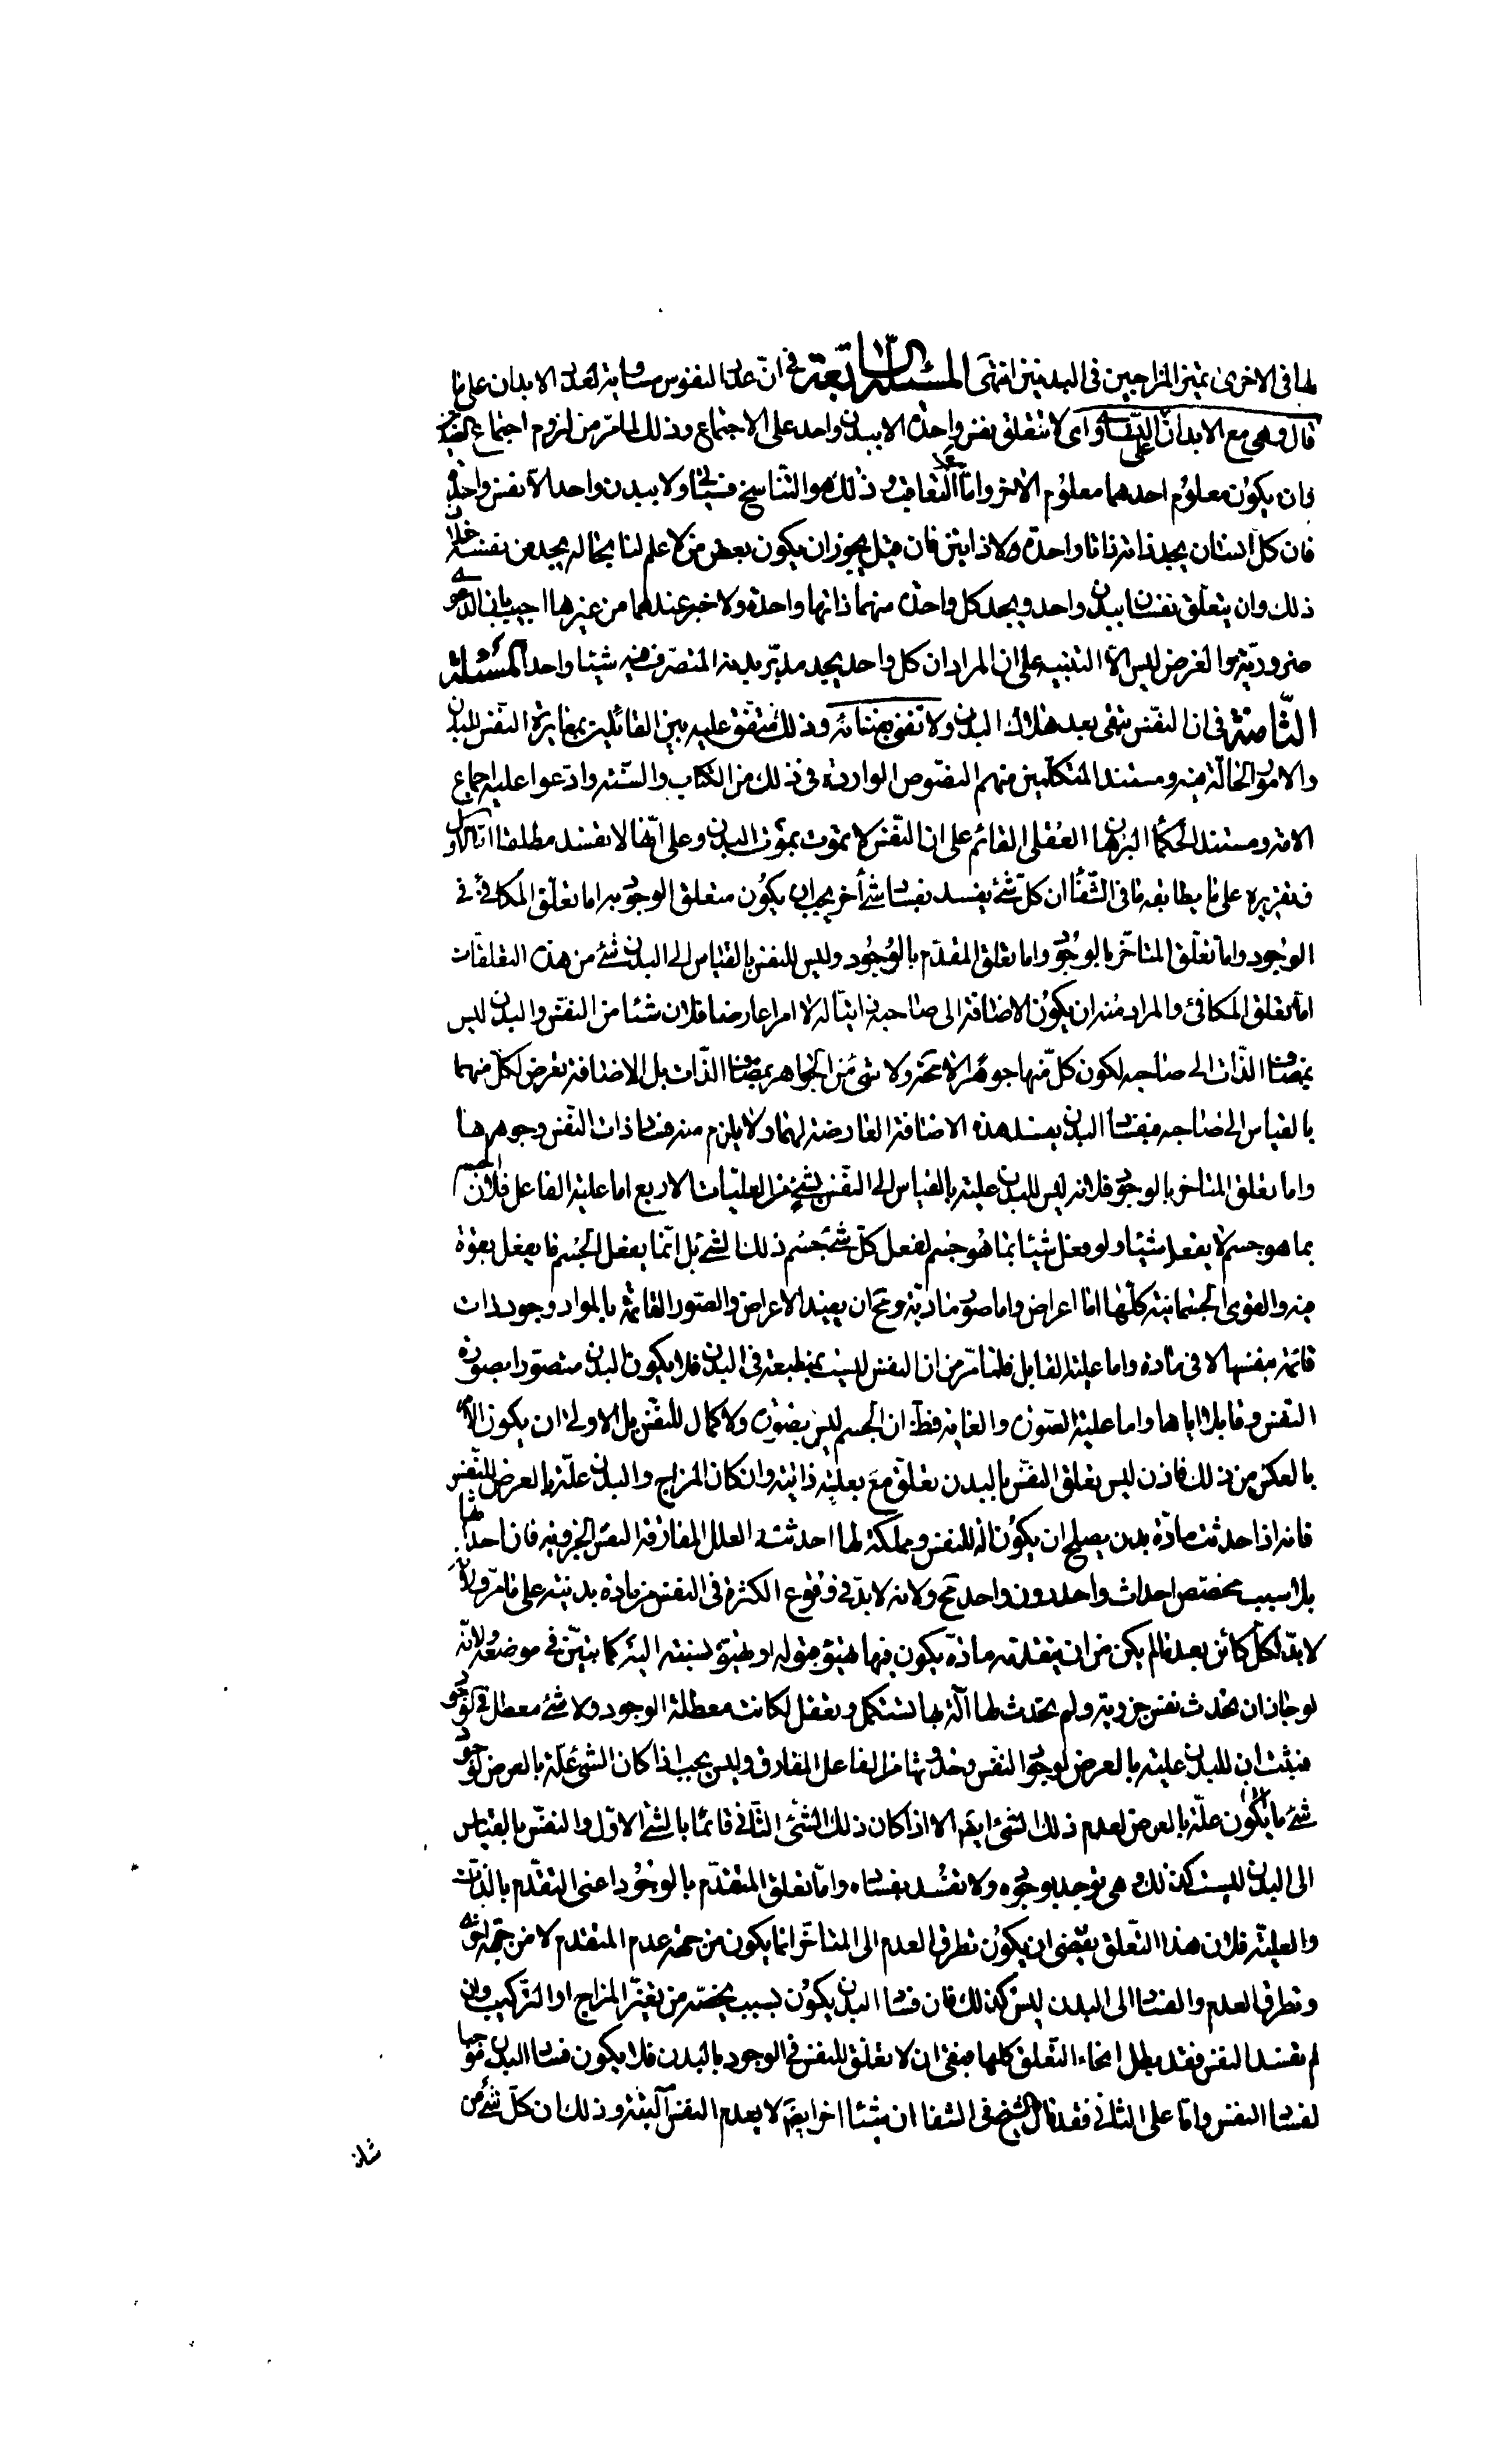 لها فى الاخرى بتميز المزاجين فى البدنين انتهى المسئلة السابعة فى انّ عدد النفوس مساوية لعدد الابدان على ما
قال وهى مع الابدان على التساوى اى لا تتعلق نفس واحدة الا ببدن واحد على الاجتماع وذلك لما مرّ من لزوم اجتماع الضدين
فان يكون معلوم احدهما معلوم الاخر وامّا التعاقب فذلك هو التناسخ فسياتى ولا ببدن واحد الّا نفس واحدة
فان كل انسان يجد ذاته ذاتا واحدة ولا ذاتين فان قيل يجوز ان يكون بعض من لا علم لنا بحاله يجد من نفسه خلاف
ذلك وان يتعلّق نفسان ببدن واحد ويجد كل واحدة منهما ذاتها واحدة ولا خبر عندهما من غيرها اجيب بان الدعوى
ضرورديّة والغرض ليس الّا التنبيه على ان المراد ان كل واحد يجد مدبّر بدنه المتصرف فيه شيئا واحدا المسئلة
الثّامنة فى ان النفس تبقى بعد هلاك البدن ولا تفنى بفنائه وذلك متفق عليه بين القائلين بمغايرة النفس للبدن
والامور الحالّة فيه ومستند المتكلّمين منهم النصوص الواردة فى ذلك من الكتاب والسّنة وادّعوا عليه اجماع
الامة ومستند الحكماء البرهان العقلى القائم على ان النّفس لا تموت بموت البدن وعلى انّها لا تفسد مطلقا امّا الاول
فتقريره على ما يطابقه ما فى الشّفاء ان كلّ شئ يفسد بفساد شئ آخر يجب ان يكون متعلق الوجود به اما تعلّق المكافئ فى
الوجود وامّا تعلّق المتاخّر بالوجود واما تعلق المقدّم بالوجود وليس للنفس بالقياس الى البدن شئ من هذه التعلّقات
امّا تعلق المكافئ والمراد منه ان يكون الاضافة الى صاحبه ذاتيا له لا امرا عارضا فلان شئا من النفس والبدن ليس
بمضاف الذّات الى صاحبه لكون كلّ منها جوهرا لا محة ولا شئ من الجواهر بمضاف الذّات بل الاضافة تعرض لكل منهما
بالقياس الى صاحبه فبفساد البدن يفسد هذه الاضافة العارضة لهما ولا يلزم منه فساد ذات النّفس وجوهرها
واما تعلق المتاخر بالوجود فلانه ليس للبدن علية بالقياس الى النفس بشئ من العليّات الاربع اما علية الفاعل فلان الجسم
بما هو جسم لا يفعل شيئا ولو فعل شيئا بما هو جسم لفعل كلّ شئ جسم ذلك الشئ بل انّما يفعل الجسم ما يفعل بقوة
فيه والقوى الجسمانية كلّها امّا اعراض واما صور ماديّة ومح ان يفيد الاعراض والصور القائمة بالمواد وجود ذات
قائمة بنفسها لا فى مادة واما علية القابل فلما مّر من ان النفس ليست بمنطبعة فى البدن فلا يكون البدن متصوّرا بصورة
النفس وقابلا اياها واما علية الصورة والغاية فظ ان الجسم ليس بصورة ولا كمال للنّفس بل الاولى ان يكون الامر
بالعكس من ذلك فاذن ليس تعلق النفس بالبدن تعلّق مع بعلية ذاتية وان كان المزاج والبدن علّة بالعرض للنّفس
فانه اذا حدثت مادّة بدن يصلح ان يكون الة للنفس ومملكة لها احدثت العلل المفارقة النفس الجزوية فان احداثها
بلا سبب مخصّص احداث واحد دون واحد مح ولانه لا بدّ فى وقوع الكثرة فى النفس من مادة بدنية على ما مرّ ولان
لا بدّ لكلّ كائن بعد ما لم يكن من ان يتقدّمه مادّة يكون فيها تهيؤ قبوله او تهيؤ نسبته اليه كما يتبيّن فى موضعه ولانّه
لو جاز ان تحدث نفس جزوية ولم تحدث لها آلة بها تستكمل وتفعل لكانت معطلة الوجود ولا شئ معطل فى الوجود
فثبت ان للبدن علية بالعرض لوجود النفس وحدوثها من الفاعل المفارق وليس يجب اذا كان الشئ علّة بالعرض لوجود
شئ ما ان يكون علّة بالعرض لعدم ذلك الشئ ايضا الا اذا كان ذلك الشئ الثّانى قائما بالشئ الاوّل والنفس بالقياس
الى البدن ليست كذلك فهى توجد بوجوده ولا تفسد بفساده وامّا تعلق المتقدّم بالوجود اعنى التقدّم بالذّات
والعليّة فلان هذا التّعلق يقتضى ان يكون تطرق العدم الى المتاخّر انما يكون من جهة عدم المتقدم لا من جهة اخرى
وتطرق العدم والفساد الى البدن ليس كذلك فان فساد البدن يكون بسبب يخصّه من تغيّر المزاج او التركيب وان
لم تفسد النفس فقد بطل انحاء التّعلق كلها فبقى ان لا تعلّق للنفس فى الوجود بالبدن فلا يكون فساد البدن موجبا
لفساد النفس وامّا على الثانى فقد قال الشيخ فى الشفا ان شيئا اخر ايضا لا يعدم النفس البتّة وذلك ان كلّ شئ من
شانه